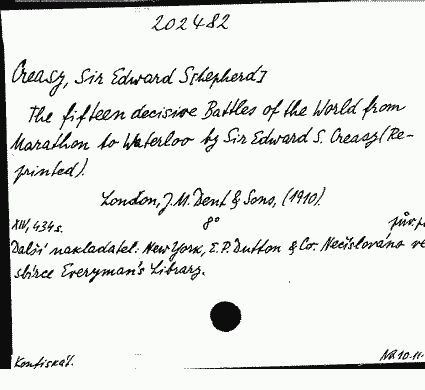 202482
Creasy, Sir Edward S[hepherd]
The fifteen decisive Battles of the World from
Marathon to Waterloo by Sir Edward S. Creasy (Re-
printed).
London, J. M. Dent & Sons, (1910).
XIV, 434 s. 8°
Další nakladatel: New York, E. P. Dutton & Co. Nečíslováno ve
sbírce Everyman's Library.
Konfiskát.